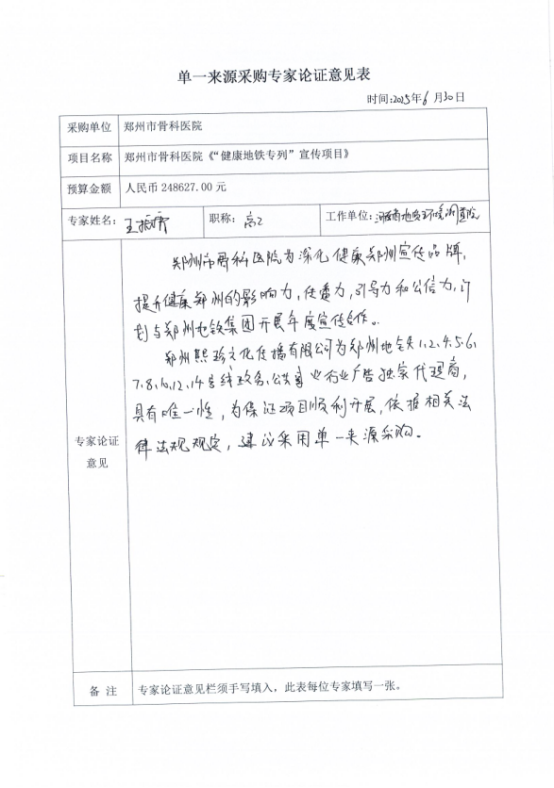 单一来源采购专家论证意见表
时间:2025年6月30日
采购单位 郑州市骨科医院
项目名称 郑州市骨科医院《“健康地铁专列”宣传项目》
预算金额 人民币 248627.00 元
专家姓名: 王 职称: 高工 工作单位: 河南省地质环境调查院
郑州市骨科医院为深化健康郑州宣传品牌,
提升健康郑州的影响力,传播力,引导力和公信力,计
划与郑州地铁集团开展年度宣传合作。
郑州熙 文化传播有限公司为郑州地铁1.2.4.5.6.
7.8.10.12.14号线政务、公共事业行业广告独家代理商,
具有唯一性,为保证项目顺利开展,依据相关法
律法规规定,建议采用单一来源采购。
专家论证
意见
备 注 专家论证意见栏须手写填入,此表每位专家填写一张。